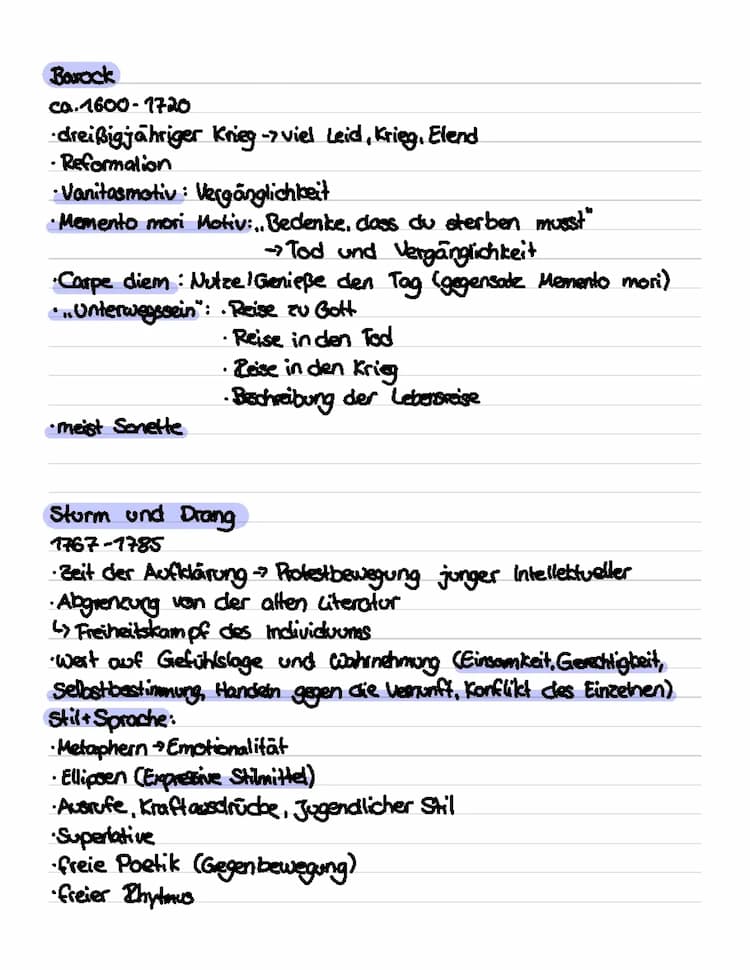 Barock
ca. 1600 - 1720
· dreißigjähriger Krieg → viel Leid, Krieg, Elend
· Reformation
· Vanitasmotiv : Vergänglichkeit
· Memento mori Motiv: „Bedenke, dass du sterben musst"
→ Tod und Vergänglichkeit
· Carpe diem : Nutze/Genieße den Tag (gegensatz Memento mori)
· „Unterwegssein" : · Reise zu Gott
· Reise in den Tod
· Reise in den Krieg
· Beschreibung der Lebensreise
· meist Sonette
Sturm und Drang
1767 - 1785
· Zeit der Aufklärung → Protestbewegung junger Intellektueller
· Abgrenzung von der alten Literatur
↳ Freiheitskampf des Individuums
· Wert auf Gefühlslage und Wahrnehmung (Einsamkeit, Gerechtigkeit,
Selbstbestimmung, Handeln gegen die Vernunft, Konflikt des Einzelnen)
Stil + Sprache:
· Metaphern → Emotionalität
· Ellipsen (Expressive Stilmittel)
· Ausrufe, Kraftausdrücke, Jugendlicher Stil
· Superlative
· freie Poetik (Gegenbewegung)
· freier Rhytmus